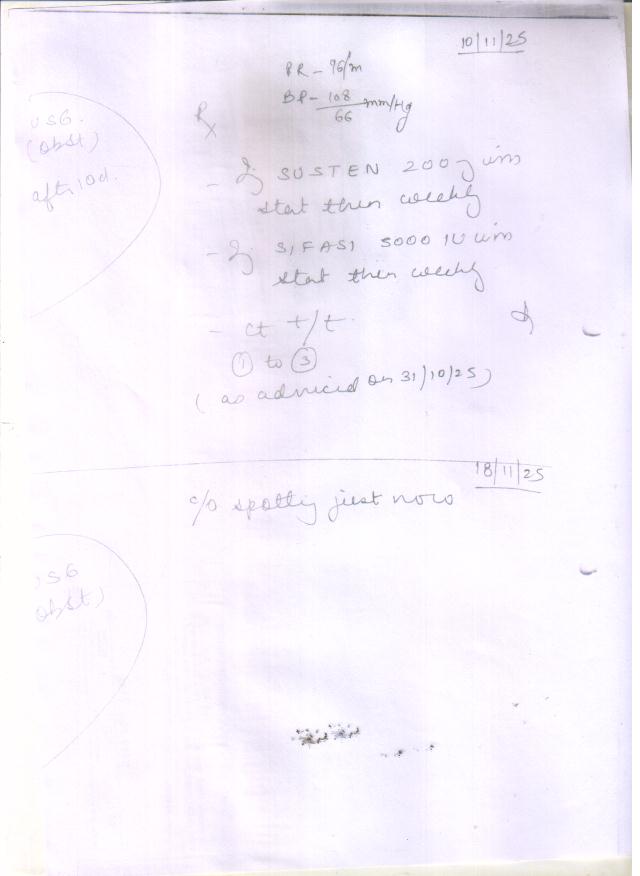 10/11/25
PR - 96/m
BP - 108/66 mm/Hg
Rx
USG.
(obst)
after 10d.
- Inj SUSTEN 200 mg i/m
stat then weekly
- Inj. SIFASI 5000 IU i/m
stat then weekly
- ct t/t.
① to ③
(as adviced on 31/10/25)
18/11/25
c/o spotting just now
USG
obst)